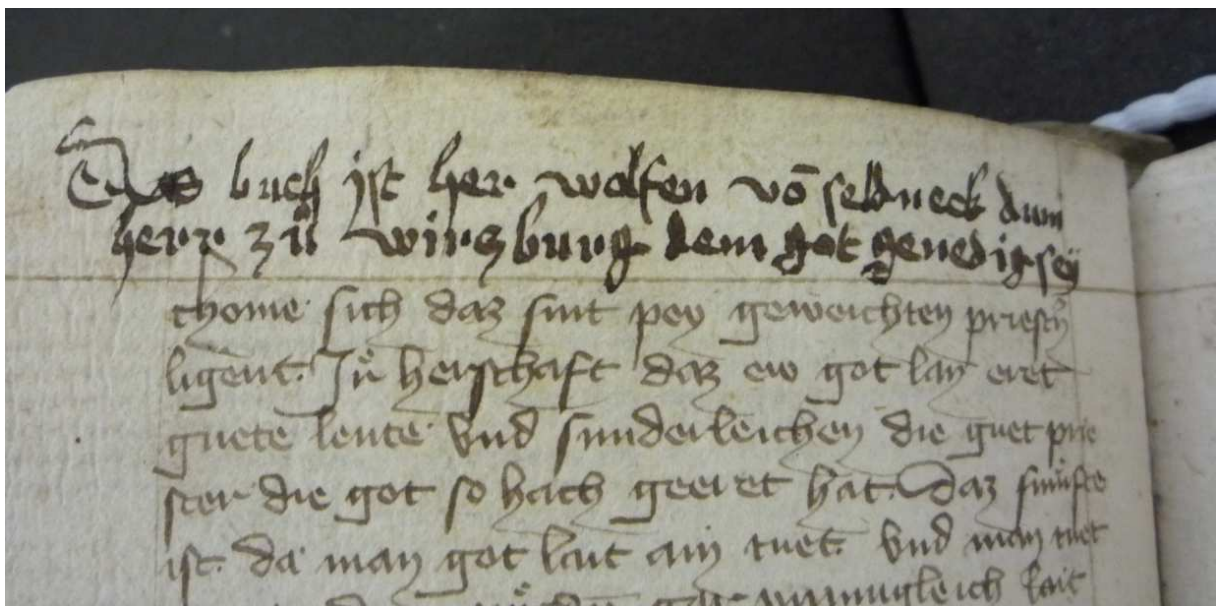 Das buch ist her wolfen vō seldneck dum
herr zů wirczburg dem got genedig sey
chome sich daz sint pey geweichten priestern
ligent. Ir herschaft daz ew got lazz eret
guete leute vnd sunderleichen die guet prie
ster die got so hach geeret hat. Daz funfte
ist. da man got lait an tuet. vnd man tuet